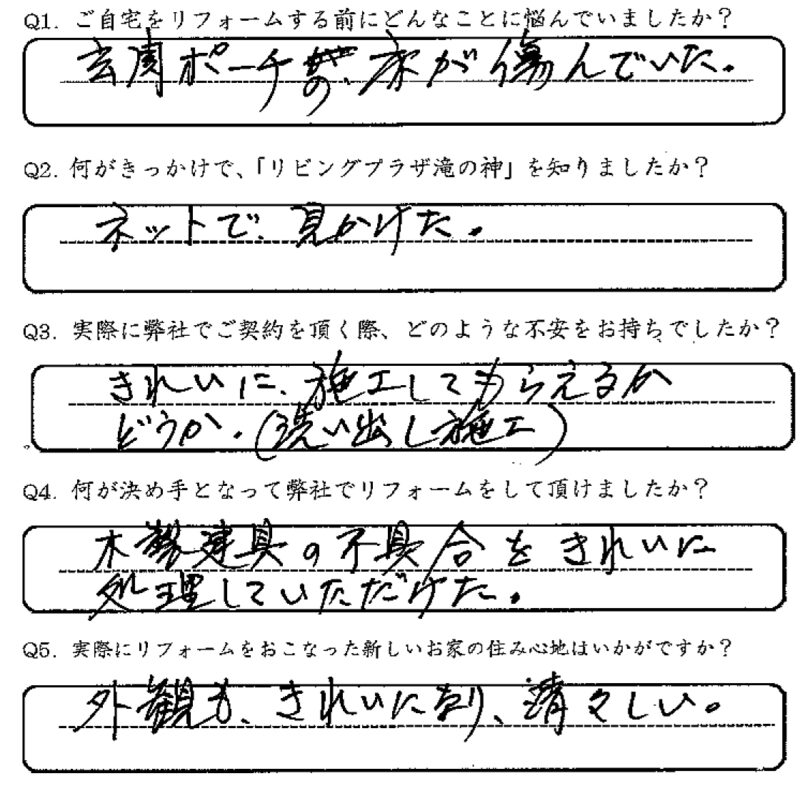 Q1. ご自宅をリフォームする前にどんなことに悩んでいましたか?
玄関ポーチの床が傷んでいた。
Q2. 何がきっかけで、「リビングプラザ滝の神」を知りましたか?
ネットで、見かけた。
Q3. 実際に弊社でご契約を頂く際、どのような不安をお持ちでしたか?
きれいに、施工してもらえるか
どうか。(洗い出し施工)
Q4. 何が決め手となって弊社でリフォームをして頂けましたか?
木製建具の不具合をきれいに
処理していただけた。
Q5. 実際にリフォームをおこなった新しいお家の住み心地はいかがですか?
外観も、きれいになり、清々しい。